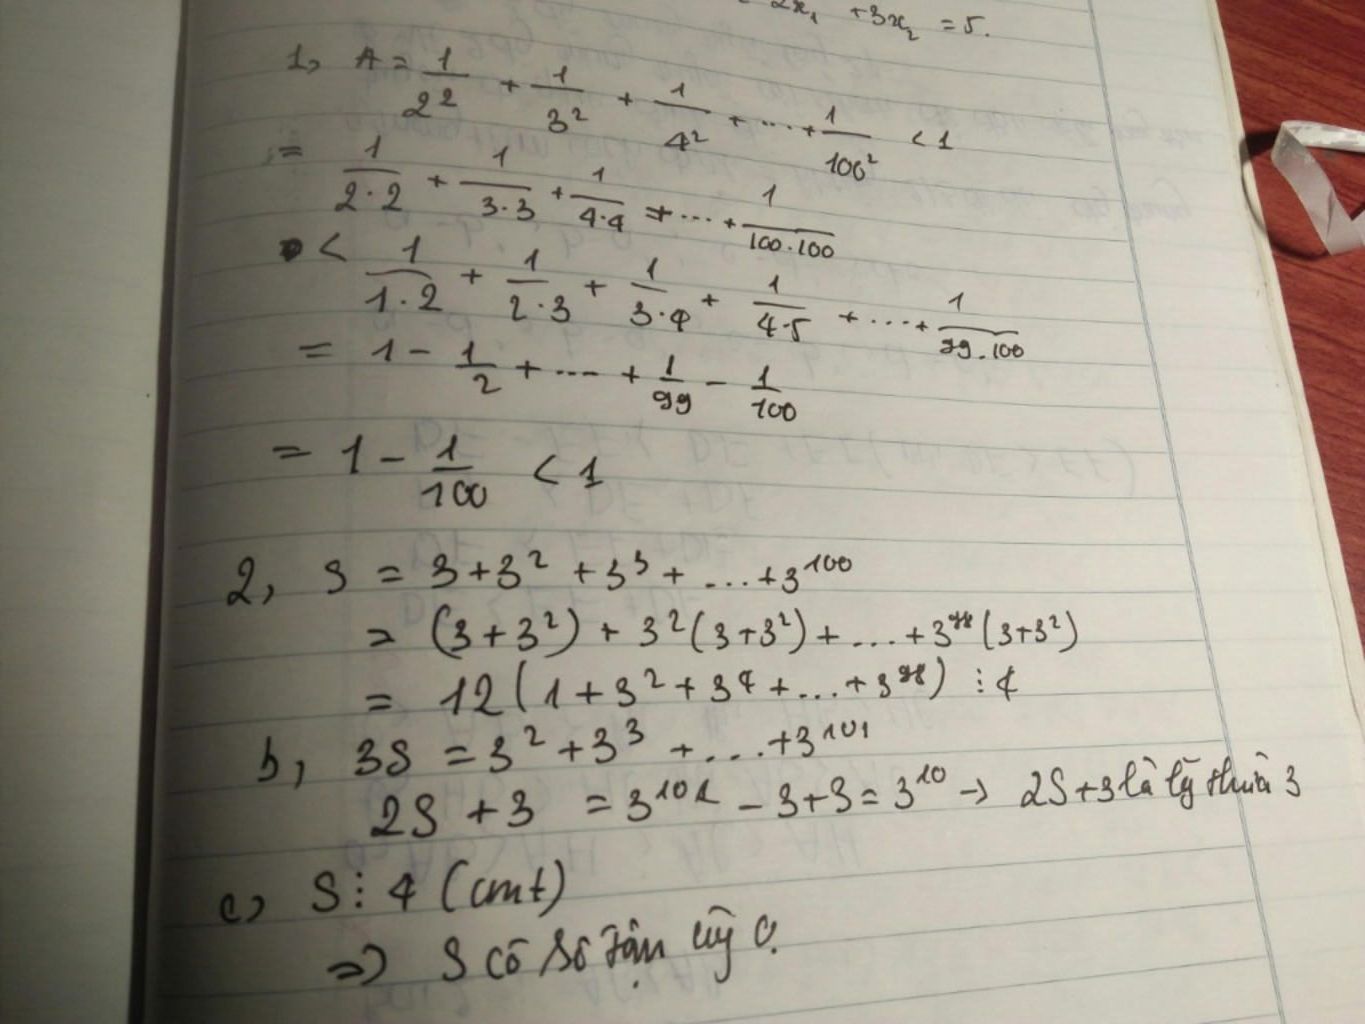 2x₁ + 3x₂ = 5.
1, A = 1/2² + 1/3² + 1/4² + ... + 1/100² < 1
= 1/2·2 + 1/3·3 + 1/4·4 + ... + 1/100·100
< 1/1·2 + 1/2·3 + 1/3·4 + 1/4·5 + ... + 1/99.100
= 1 - 1/2 + ... + 1/99 - 1/100
= 1 - 1/100 < 1
2, S = 3 + 3² + 3³ + ... + 3¹⁰⁰
= (3 + 3²) + 3²(3 + 3²) + ... + 3⁹⁸(3 + 3²)
= 12(1 + 3² + 3⁴ + ... + 3⁹⁸) ⋮ 4
b, 3S = 3² + 3³ + ... + 3¹⁰¹
2S + 3 = 3¹⁰¹ - 3 + 3 = 3¹⁰ → 2S + 3 là lũy thừa 3
c, S ⋮ 4 (cmt)
=> S có số tận cùng 0.